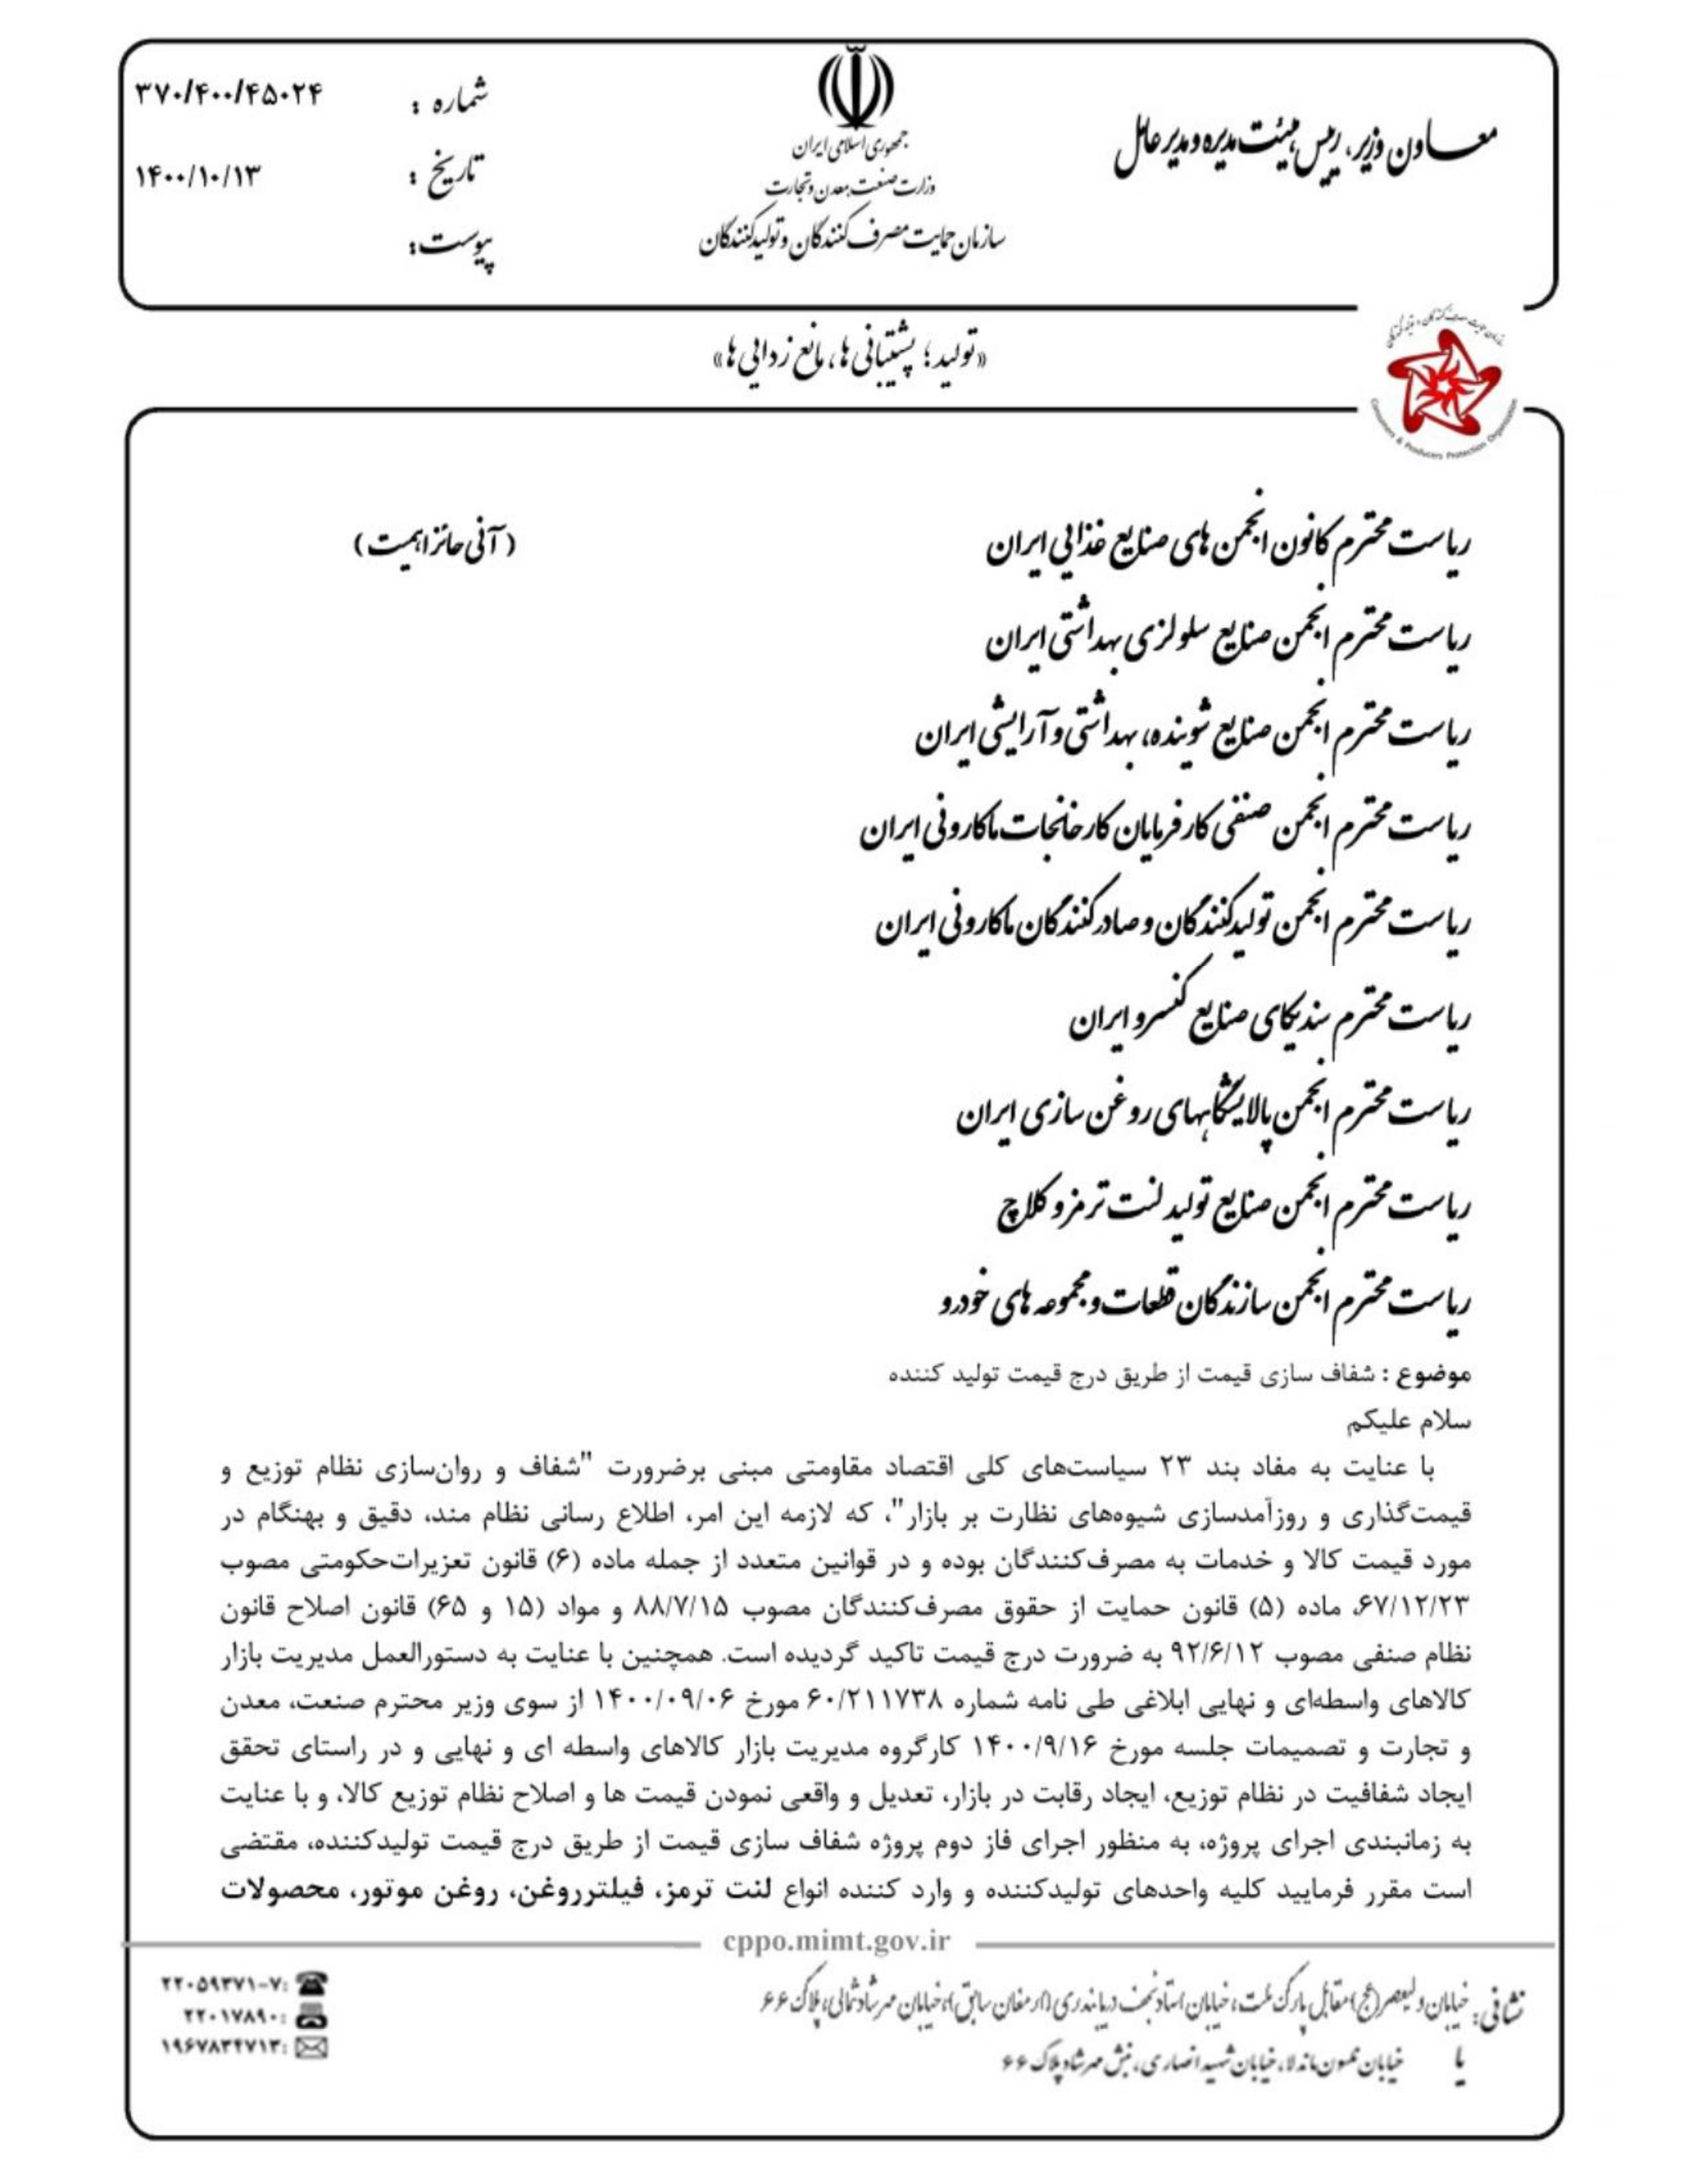 معاون وزیر، رییس هیئت مدیره و مدیر عامل
جمهوری اسلامی ایران
وزارت صنعت، معدن و تجارت
سازمان حمایت مصرف کنندگان و تولیدکنندگان
شماره : ۳۷۰/۴۰۰/۴۵۰۲۴
تاریخ : ۱۴۰۰/۱۰/۱۳
پیوست:
«تولید؛ پشتیبانی ها، مانع زدایی ها»
Consumers & Producers Protection Organization
ریاست محترم کانون انجمن های صنایع غذایی ایران
(آنی حائز اهمیت)
ریاست محترم انجمن صنایع سلولزی بهداشتی ایران
ریاست محترم انجمن صنایع شوینده، بهداشتی و آرایشی ایران
ریاست محترم انجمن صنفی کارفرمایان کارخانجات ماکارونی ایران
ریاست محترم انجمن تولیدکنندگان و صادرکنندگان ماکارونی ایران
ریاست محترم سندیکای صنایع کنسرو ایران
ریاست محترم انجمن پالایشگاههای روغن سازی ایران
ریاست محترم انجمن صنایع تولید لنت ترمز و کلاچ
ریاست محترم انجمن سازندگان قطعات و مجموعه های خودرو
موضوع : شفاف سازی قیمت از طریق درج قیمت تولید کننده
سلام علیکم
با عنایت به مفاد بند ۲۳ سیاست‌های کلی اقتصاد مقاومتی مبنی برضرورت "شفاف و روان‌سازی نظام توزیع و
قیمت‌گذاری و روزآمدسازی شیوه‌های نظارت بر بازار"، که لازمه این امر، اطلاع رسانی نظام مند، دقیق و بهنگام در
مورد قیمت کالا و خدمات به مصرف‌کنندگان بوده و در قوانین متعدد از جمله ماده (۶) قانون تعزیرات‌حکومتی مصوب
۶۷/۱۲/۲۳، ماده (۵) قانون حمایت از حقوق مصرف‌کنندگان مصوب ۸۸/۷/۱۵ و مواد (۱۵ و ۶۵) قانون اصلاح قانون
نظام صنفی مصوب ۹۲/۶/۱۲ به ضرورت درج قیمت تاکید گردیده است. همچنین با عنایت به دستورالعمل مدیریت بازار
کالاهای واسطه‌ای و نهایی ابلاغی طی نامه شماره ۶۰/۲۱۱۷۳۸ مورخ ۱۴۰۰/۰۹/۰۶ از سوی وزیر محترم صنعت، معدن
و تجارت و تصمیمات جلسه مورخ ۱۴۰۰/۹/۱۶ کارگروه مدیریت بازار کالاهای واسطه ای و نهایی و در راستای تحقق
ایجاد شفافیت در نظام توزیع، ایجاد رقابت در بازار، تعدیل و واقعی نمودن قیمت ها و اصلاح نظام توزیع کالا، و با عنایت
به زمانبندی اجرای پروژه، به منظور اجرای فاز دوم پروژه شفاف سازی قیمت از طریق درج قیمت تولیدکننده، مقتضی
است مقرر فرمایید کلیه واحدهای تولیدکننده و وارد کننده انواع لنت ترمز، فیلترروغن، روغن موتور، محصولات
cppo.mimt.gov.ir
نشانی: خیابان ولیعصر(عج)، مقابل پارک ملت، خیابان استاد نجف دریابندری (ارمغان سابق)، خیابان مهرشاد شمالی، پلاک ۶۶
یا خیابان نلسون ماندلا، خیابان شهید انصاری، نبش مهرشاد پلاک ۶۶
۲۲۰۵۹۳۷۱-۷:
۲۲۰۱۷۸۹۰:
۱۹۶۷۸۳۴۷۱۳: